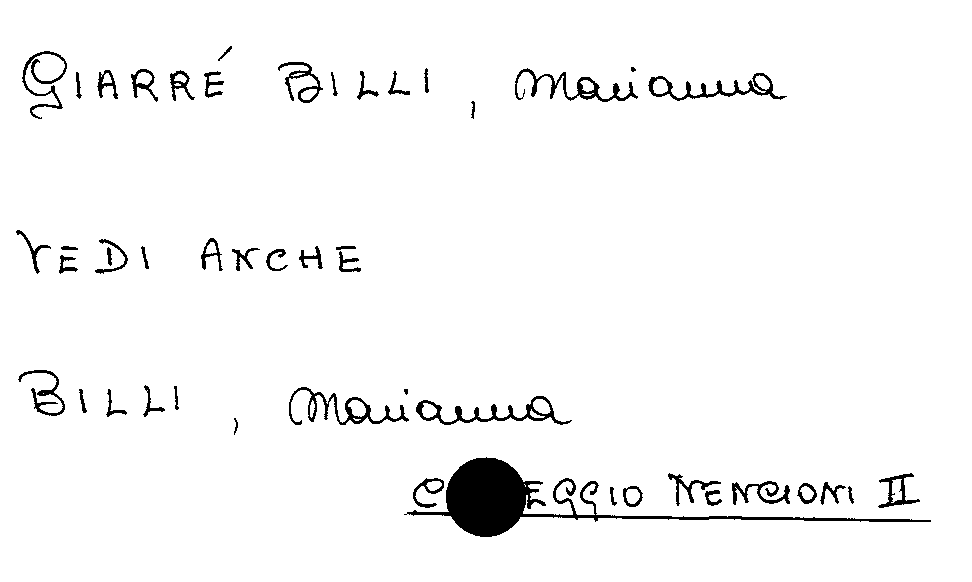 GIARRÉ BILLI, Marianna
VEDI ANCHE
BILLI, Marianna
NENCIONI II